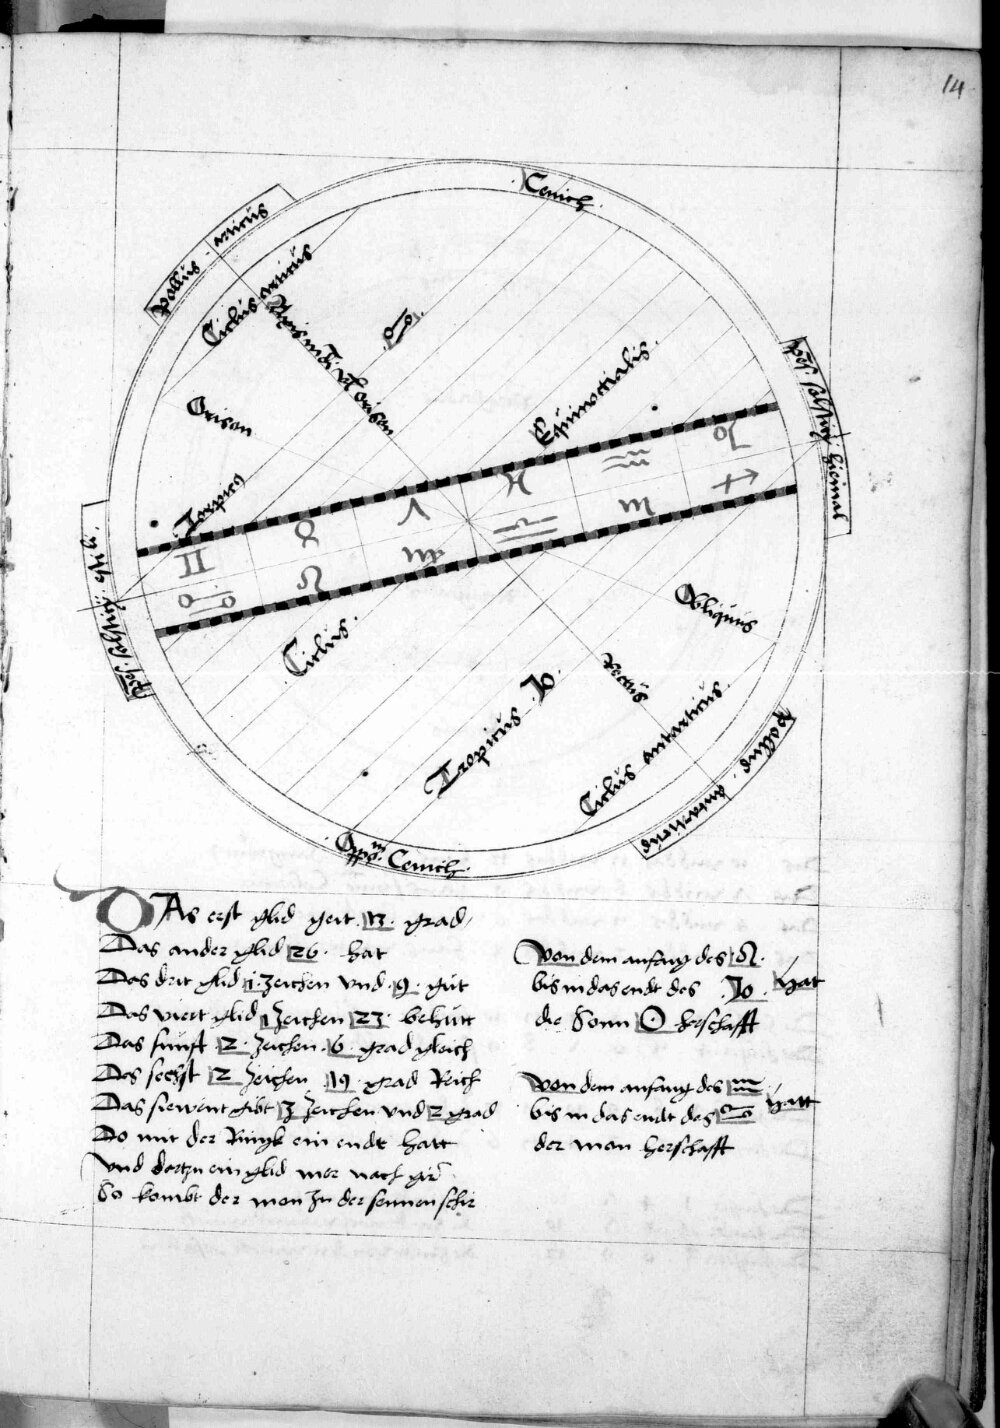 14
Cenith
Pollus articus
Circlus articus
Axis mdi vl orisen
♋
Orison
Equinoctialis
Tropicus
♊ ♉ ♈ ♓ ♒ ♑
♋ ♌ ♍ ♎ ♏ ♐
Circlus
Obliquus
Rectus
Tropicus ♑
Circlus antarticus
Pollus antarticus
Oppo. Cenith
DAs erst glid gert 13 grad
Das ander glid 26 hat
Das drit glid 1 zeichen vnd 9 gut
Das viert glid 1 zeichen 23 behutt
Das funfft 2 zeichen 6 grad gleich
Das sechst 2 zeichen 19 grad Reich
Das siewent gibt 3 zeichen vnd 2 grad
Do mit der Ringk ein endt hatt
Vnd dortzu ein glid mer noch gir
So kombt der mon zu der sunnen schir
Von dem anfang des ♌
bis in das endt des ♑ hat
die Sonn ☉ herschafft
Von dem anfang des ♒
bis in das endt des ♋ hatt
der mon herschafft